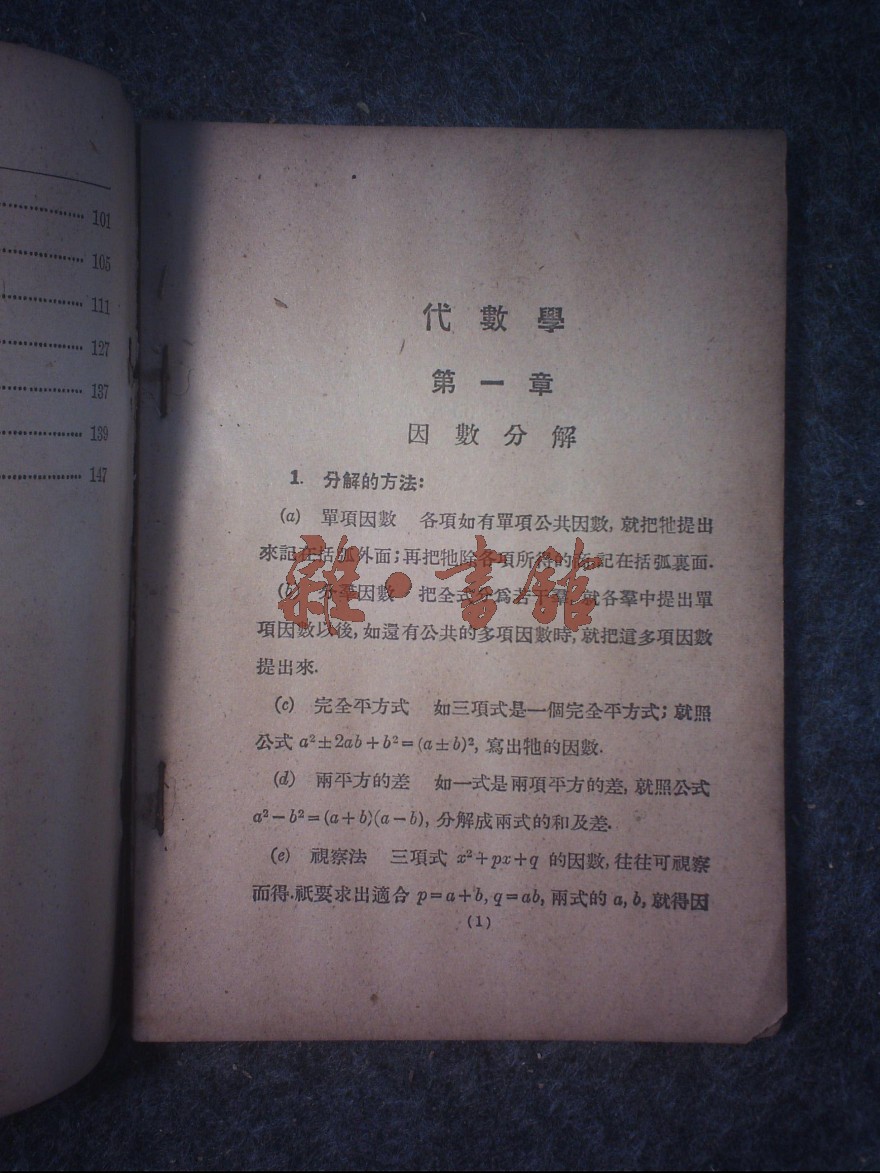 101
105
111
127
137
139
147
代數學
第一章
因數分解
1. 分解的方法:
(a) 單項因數 各項如有單項公共因數, 就把牠提出
來記在括弧外面; 再把牠除各項所得的商記在括弧裏面.
(b) 分羣因數 把全式分爲若干羣, 就各羣中提出單
項因數以後, 如還有公共的多項因數時, 就把這多項因數
提出來.
(c) 完全平方式 如三項式是一個完全平方式; 就照
公式 a²±2ab+b²=(a±b)², 寫出牠的因數.
(d) 兩平方的差 如一式是兩項平方的差, 就照公式
a²-b²=(a+b)(a-b), 分解成兩式的和及差.
(e) 視察法 三項式 x²+px+q 的因數, 往往可視察
而得. 祇要求出適合 p=a+b, q=ab, 兩式的 a, b, 就得因
(1)
雜·書館